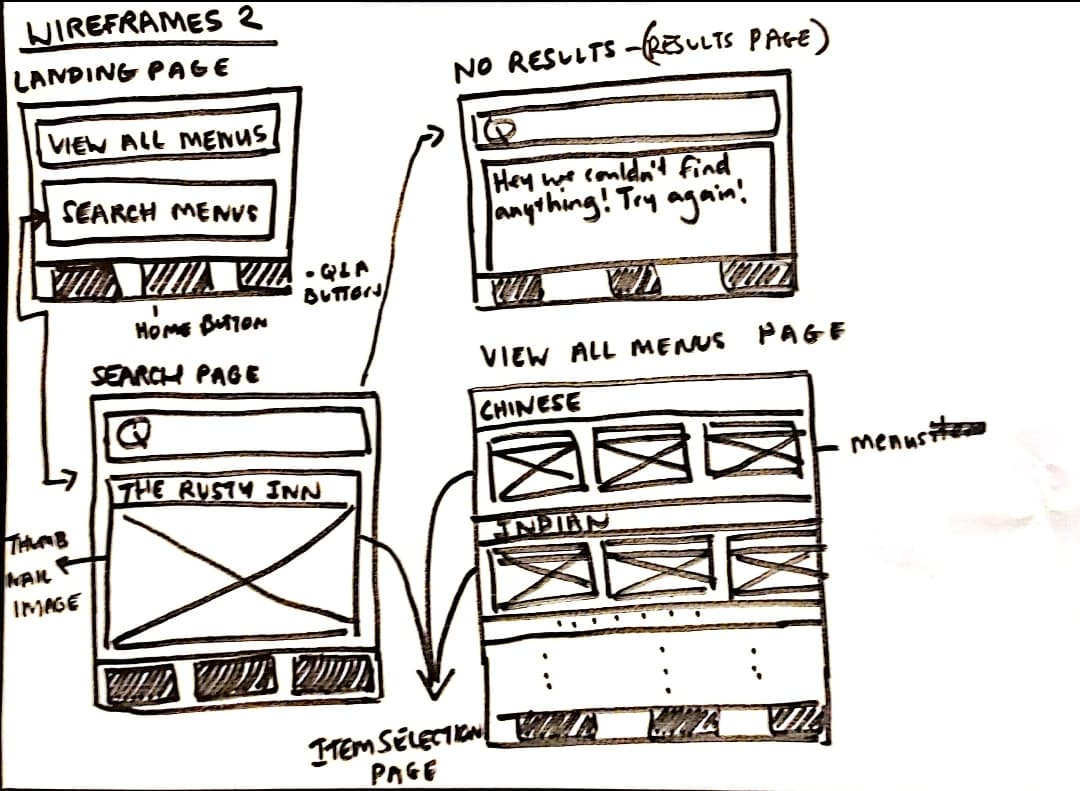 WIREFRAMES 2
LANDING PAGE
VIEW ALL MENUS
SEARCH MENUS
- Q&A
BUTTON
HOME BUTTON
NO RESULTS - (RESULTS PAGE)
Hey we couldn't find
anything! Try again!
SEARCH PAGE
THE RUSTY INN
THUMB
NAIL
IMAGE
VIEW ALL MENUS PAGE
CHINESE
menus
INDIAN
ITEM SELECTION
PAGE